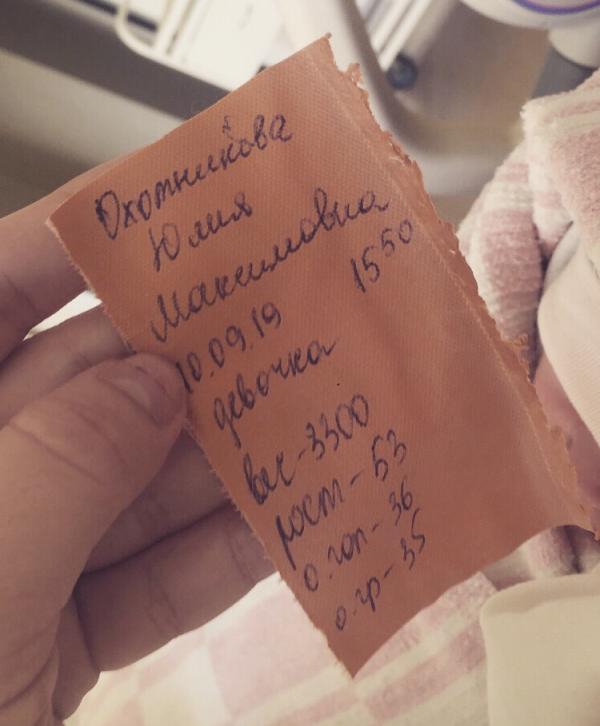 Охотникова
Юлия
Максимовна
10.09.19 1550
девочка
вес-3300
рост-53
о.гол-36
о.гр-35